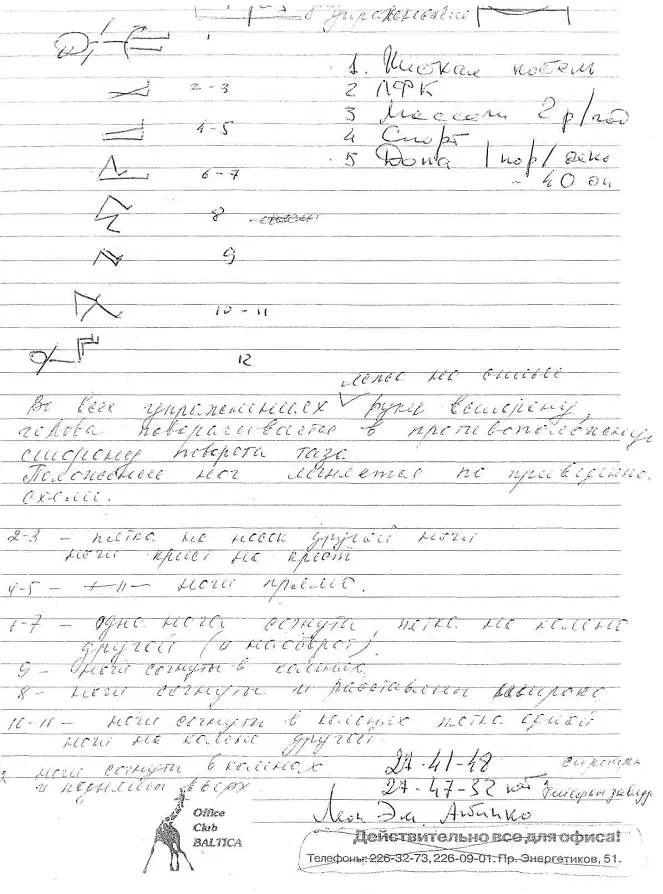 упражнение
1
1. Низкая мебель
2-3
2 ЛФК
3 Массаж 2 р/год
4-5
4 Спорт
5 Дома 1 пор/день
6-7
- 40 дн
8
9
10-11
12
лежа на спине
Во всех упражнениях руки в сторону,
голова поворачивается в противоположную
сторону поворота таза.
Положение ног меняется по приведенно.
схеме.
2-3 – пятка на носок другой ноги
ноги крест на крест
4-5 – –||– ноги прямо.
6-7 – одна нога согнута пятка на колено
другой (и наоборот)
9 – ноги согнуты в коленях
8 – ноги согнуты и расставлены широко
10-11 – ноги согнуты в коленях пятка одной
ноги на колене другой.
2 ноги согнуты в коленах
и подняты вверх
27-41-48
27-47-32
Леон Эм.
Office
Club
BALTICA
Действительно все для офиса!
Телефоны: 226-32-73, 226-09-01. Пр. Энергетиков, 51.